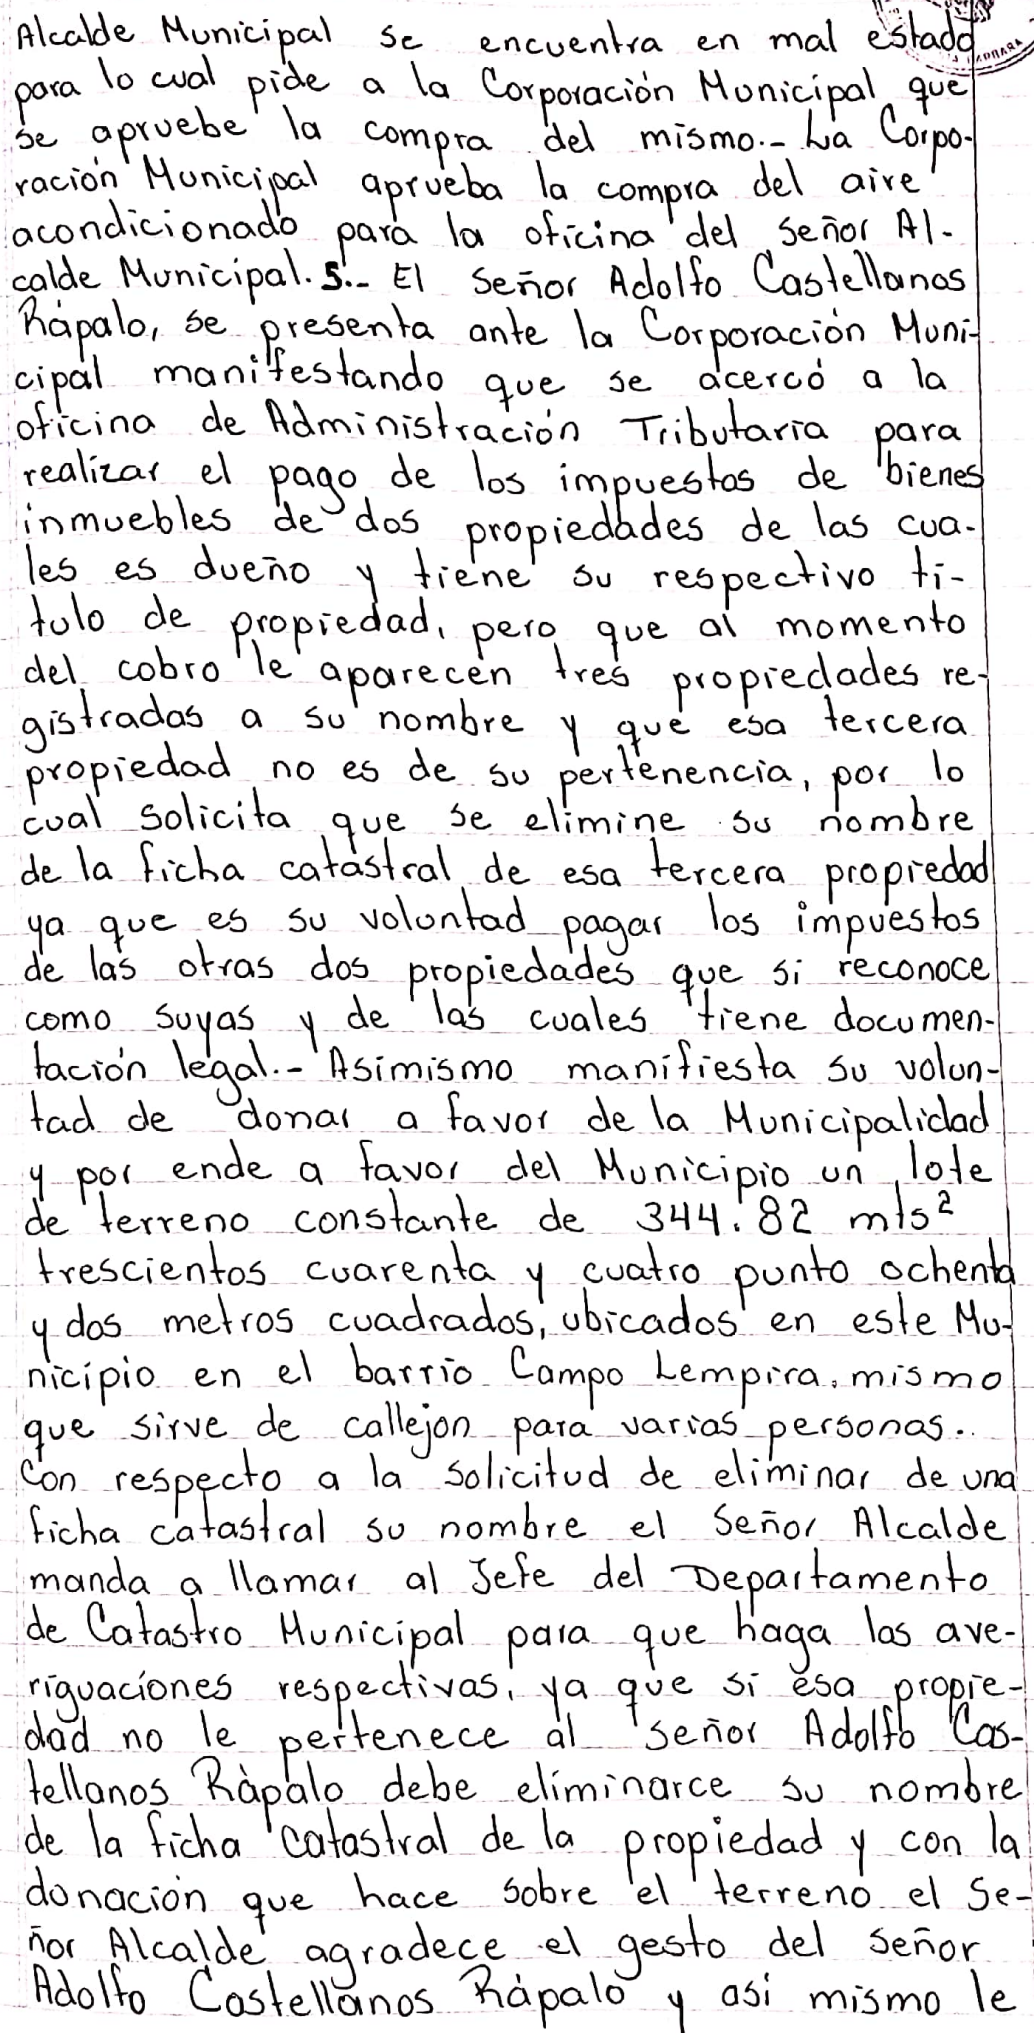 Alcalde Municipal se encuentra en mal estado
para lo cual pide a la Corporación Municipal que
se apruebe la compra del mismo.- La Corpo-
ración Municipal aprueba la compra del aire
acondicionado para la oficina del señor Al-
calde Municipal. 5.- El Señor Adolfo Castellanos
Rápalo, se presenta ante la Corporación Muni-
cipal manifestando que se acercó a la
oficina de Administración Tributaria para
realizar el pago de los impuestos de bienes
inmuebles de dos propiedades de las cua-
les es dueño y tiene su respectivo tí-
tulo de propiedad, pero que al momento
del cobro le aparecen tres propiedades re-
gistradas a su nombre y que esa tercera
propiedad no es de su pertenencia, por lo
cual solicita que se elimine su nombre
de la ficha catastral de esa tercera propiedad
ya que es su voluntad pagar los impuestos
de las otras dos propiedades que si reconoce
como suyas y de las cuales tiene documen-
tación legal.- Asimismo manifiesta su volun-
tad de donar a favor de la Municipalidad
y por ende a favor del Municipio un lote
de terreno constante de 344.82 mts²
trescientos cuarenta y cuatro punto ochenta
y dos metros cuadrados, ubicados en este Mu-
nicipio en el barrio Campo Lempira, mismo
que sirve de callejon para varias personas..
Con respecto a la solicitud de eliminar de una
ficha catastral su nombre el Señor Alcalde
manda a llamar al Jefe del Departamento
de Catastro Municipal para que haga las ave-
riguaciones respectivas, ya que si esa propie-
dad no le pertenece al señor Adolfo Cas-
tellanos Ràpalo debe eliminarce su nombre
de la ficha catastral de la propiedad y con la
donación que hace sobre el terreno el Se-
ñor Alcalde agradece el gesto del señor
Adolfo Castellanos Rápalo y así mismo le